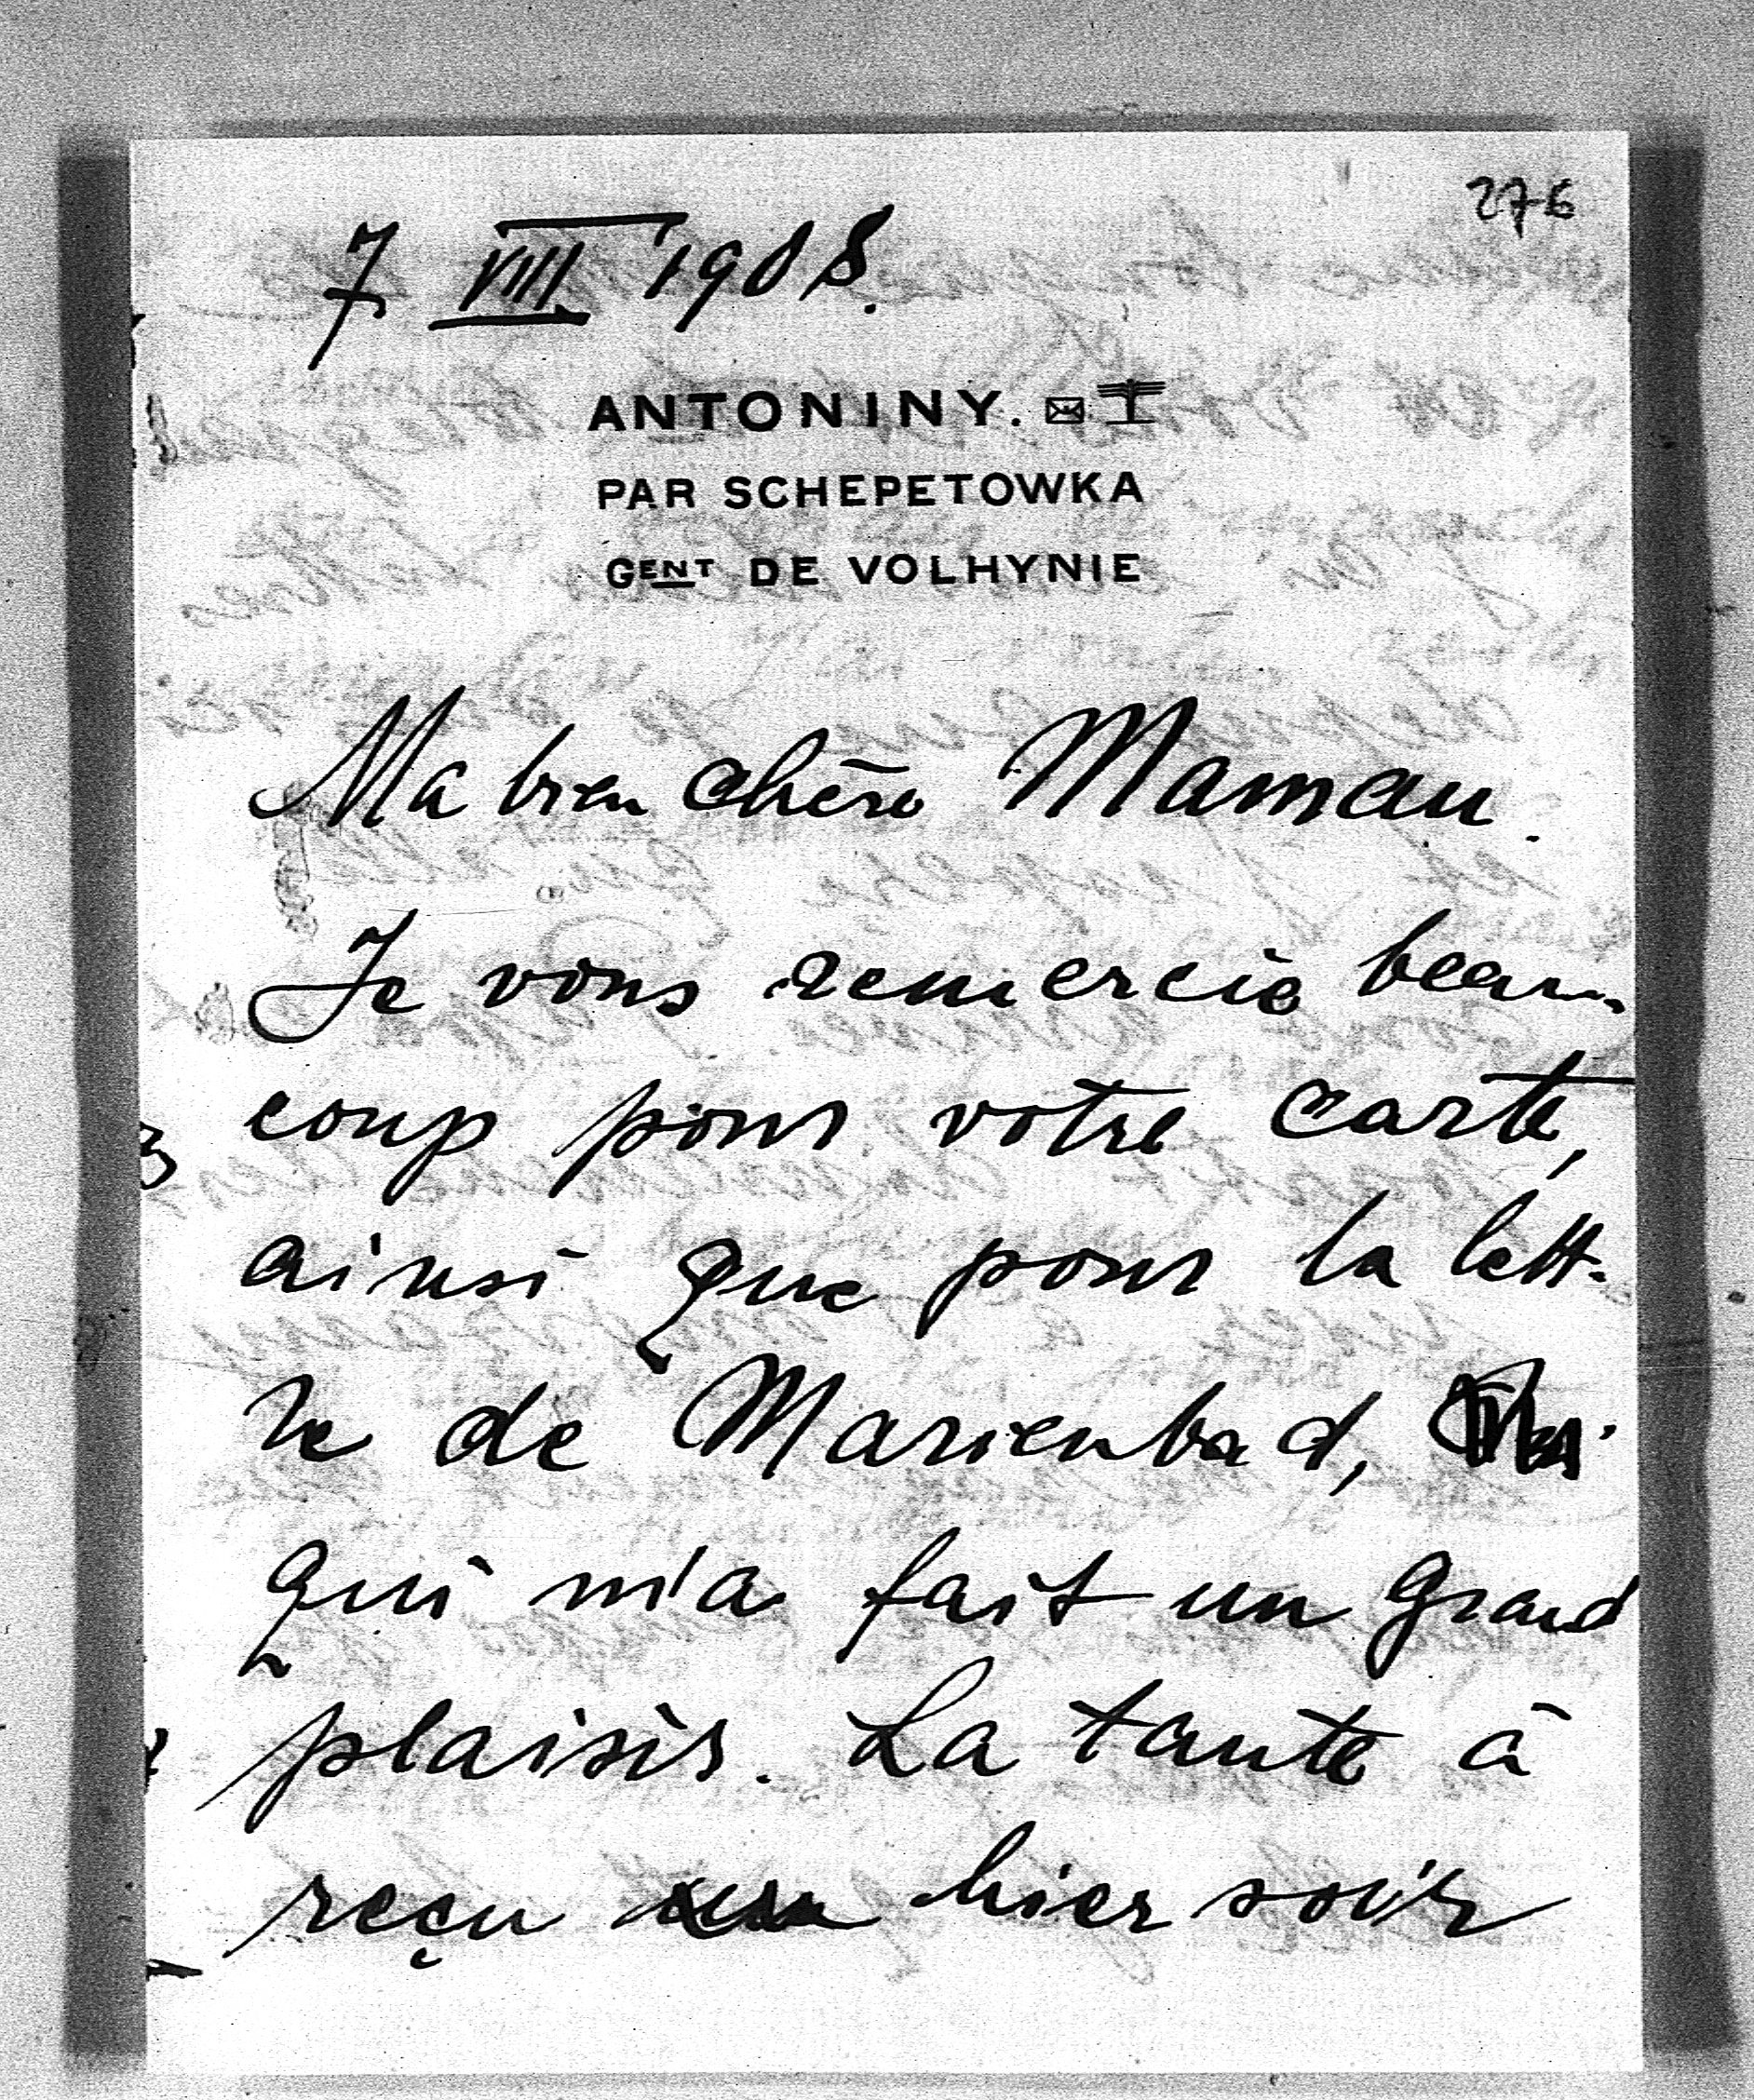 276
7 VIII 1908.
ANTONINY.
PAR SCHEPETOWKA
GENT DE VOLHYNIE
Ma bien chère Maman.
Je vous remercie beau-
coup pour votre carte,
ainsi que pour la lett-
re de Marienbad,
qui m'a fait un grand
plaisir. La tante à
reçu hier soir